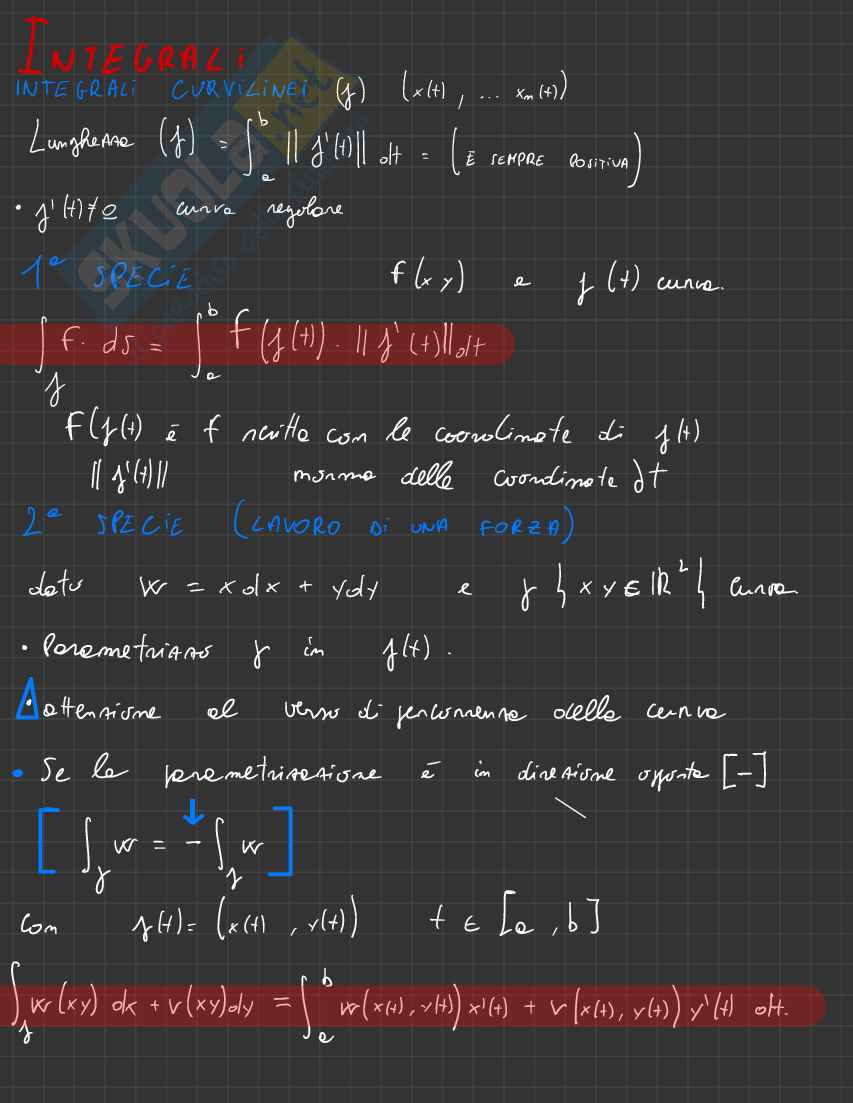 INTEGRALI
INTEGRALI CURVILINEI (γ) (x(t), ... xₙ(t))
Lunghezza (γ) = ∫ₐᵇ ||γ'(t)|| dt = (È SEMPRE POSITIVA)
• γ'(t) ≠ 0 curva regolare
1ª SPECIE f(x y) e γ(t) curva.
∫_γ f · ds = ∫ₐᵇ f(γ(t)) · ||γ'(t)|| dt
f(γ(t) è f scritta con le coordinate di γ(t)
||γ'(t)|| norma delle coordinate ∂t
2ª SPECIE (LAVORO DI UNA FORZA)
dato w = x dx + y dy e γ { x y ∈ ℝ² } curva
• Parametrizzo γ in γ(t).
attenzione al verso di percorrenza della curva
• Se la parametrizzazione è in direzione opposta [-]
[ ∫_γ w = - ∫_γ w ]
Con γ(t) = (x(t), y(t)) t ∈ [a, b]
∫_γ w(xy) dx + v(xy) dy = ∫ₐᵇ w(x(t), y(t)) x'(t) + v(x(t), y(t)) y'(t) dt.
SKUOLA.net